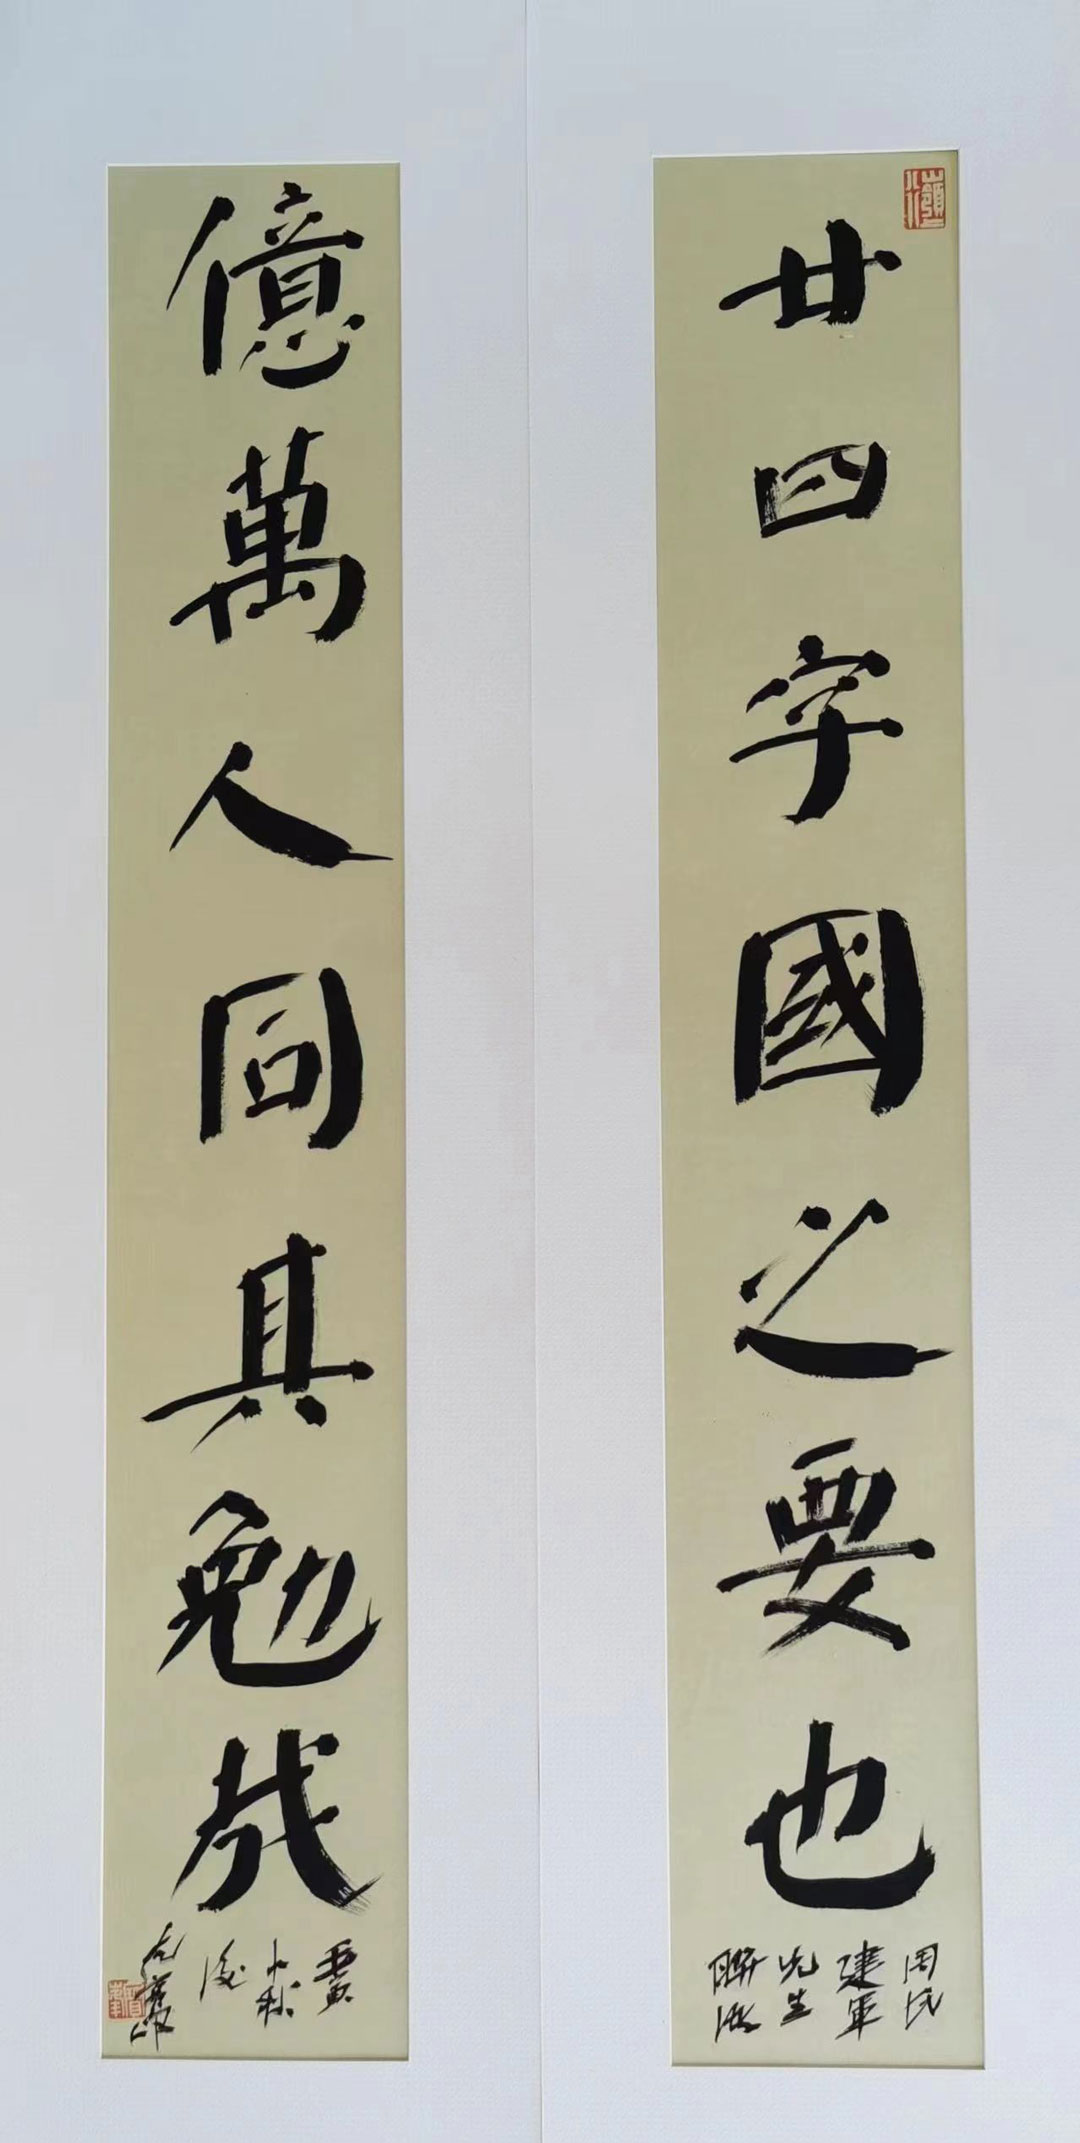 廿四字國之要也
周氏
建軍
先生
聯語
億萬人同具勉哉
小秋
後